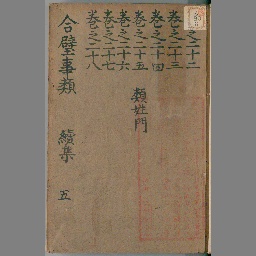 卷之二十二
卷之二十三
卷之二十四
卷之二十五
卷之二十六
卷之二十七
卷之二十八
類姓門
合璧事類 續集 五